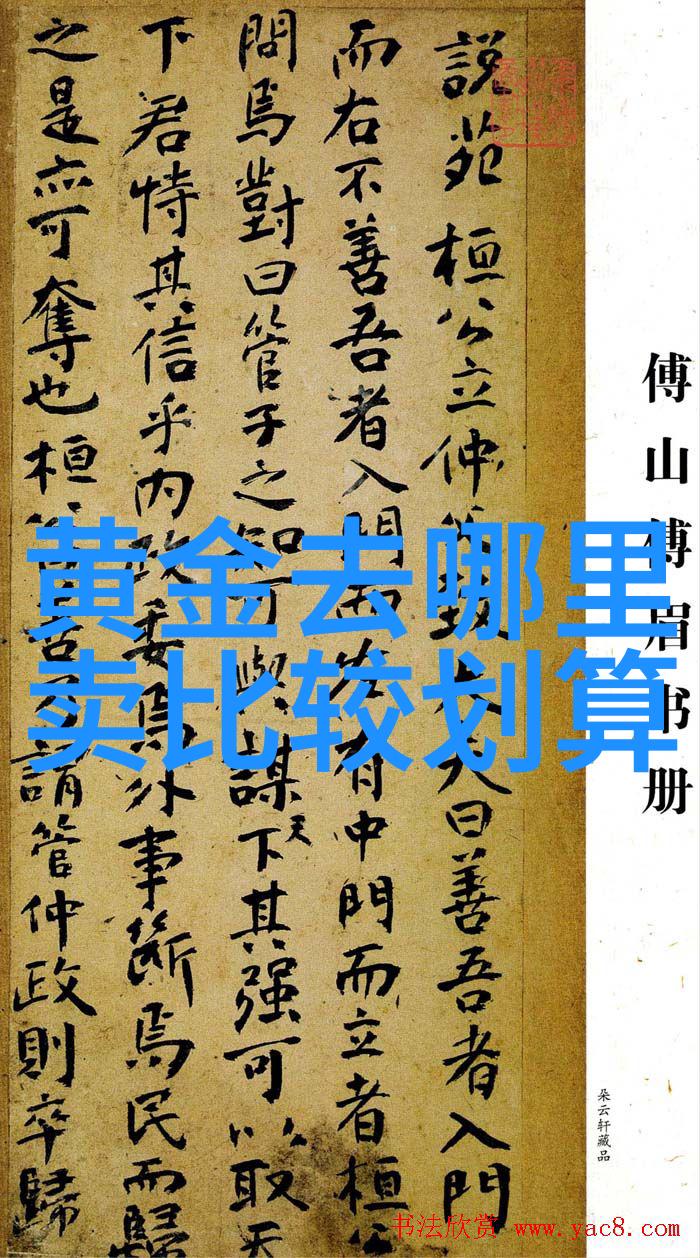 黄金去哪里
卖比较划算
傅山傅眉书册
朵云轩藏品
說苑 桓公立仲父致大夫曰善吾者入門
而右不善吾者入門而左有中門而立者桓公
問焉對曰管子之知可與謀天下其强可以取天
下君恃其信乎内政委焉外事斷焉民而歸
之是亦可奪也桓公曰善乃謂管仲政則卒歸
书法欣赏 www.yac8.com